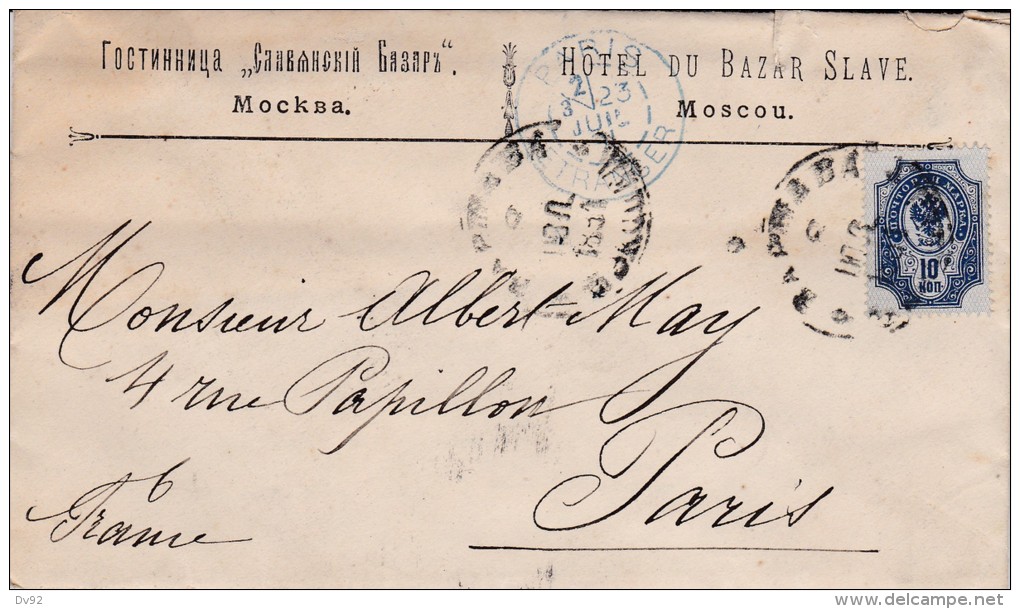 Гостинница „Славянскій Базаръ“.
Москва.
HOTEL DU BAZAR SLAVE.
Moscou.
PARIS
2
3
23
JUIL
ETRANGER
ПОЧТОВАЯ МАРКА
10
КОП
Monsieur Albert May
4 rue Papillon
Paris
France
Dv92
delcampe.net